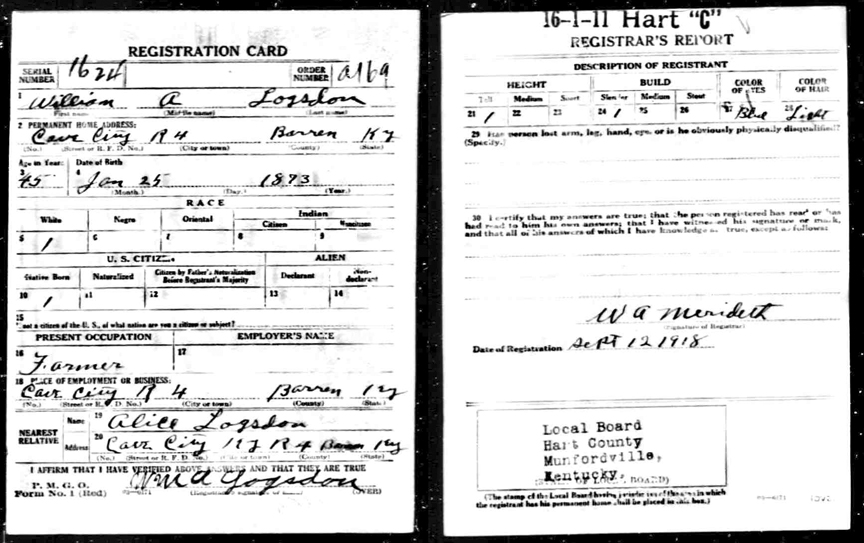 REGISTRATION CARD
SERIAL NUMBER 1624 ORDER NUMBER A169
1 William A Logsdon
First name (Middle name) (Last name)
2 PERMANENT HOME ADDRESS:
Cave City R 4 Barren Ky
(No.) (Street or R. F. D. No.) (City or town) (County) (State)
Age in Years Date of Birth
3 45 4 Jan 25 1873
(Month.) (Day.) (Year.)
RACE
White Negro Oriental Indian
Citizen Noncitizen
5 1 6 7 8 9
U. S. CITIZEN ALIEN
Native Born Naturalized Citizen by Father's Naturalization Before Registrant's Majority Declarant Non-declarant
10 1 11 12 13 14
15
not a citizen of the U. S., of what nation are you a citizen or subject?
PRESENT OCCUPATION EMPLOYER'S NAME
16 Farmer 17
18 PLACE OF EMPLOYMENT OR BUSINESS:
Cave City R 4 Barren Ky
(No.) (Street or R. F. D. No.) (City or town) (County) (State)
NEAREST RELATIVE Name 19 Alice Logsdon
Address 20 Cave City Ky R 4 Barren Ky
(No.) (Street or R. F. D. No.) (City or town) (County) (State)
I AFFIRM THAT I HAVE VERIFIED ABOVE ANSWERS AND THAT THEY ARE TRUE
P. M. G. O.
Form No. 1 (Red) Wm A Logsdon (OVER)
16-1-11 Hart "C"
REGISTRAR'S REPORT
DESCRIPTION OF REGISTRANT
HEIGHT BUILD COLOR OF EYES COLOR OF HAIR
Tall Medium Short Slender Medium Stout
21 1 22 23 24 1 25 26 27 Blue 28 Light
29 Has person lost arm, leg, hand, eye, or is he obviously physically disqualified?
(Specify.)
30 I certify that my answers are true; that the person registered has read or has
had read to him his own answers; that I have witnessed his signature or mark,
and that all of his answers of which I have knowledge are true, except as follows:
W A Merideth
(Signature of Registrar)
Date of Registration Sept 12 1918
Local Board
Hart County
Munfordville,
Kentucky.
(STAMP OF LOCAL BOARD)
(The stamp of the Local Board having jurisdiction of the area in which
the registrant has his permanent home shall be placed in this box.)